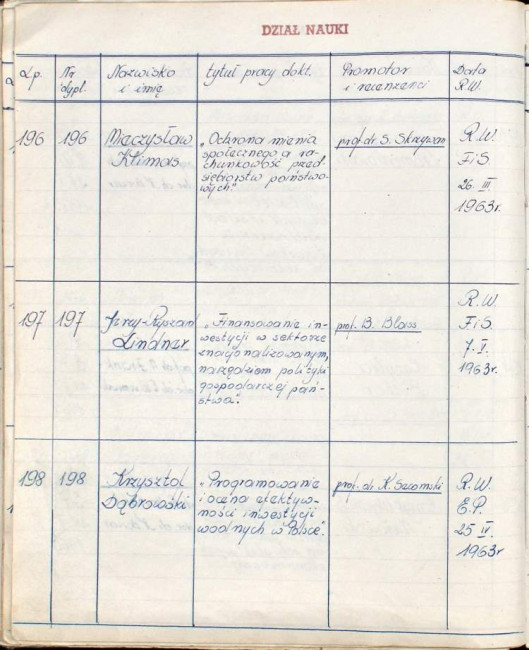 DZIAŁ NAUKI
L.p. Nr dypl. Nazwisko i imię tytuł pracy dokt. Promotor i recenzenci Data R.W.
196 196 Mieczysław Klimas „Ochrona mienia społecznego a rachunkowość przedsiębiorstw państwowych" prof. dr S. Skrzywan R.W. FiS 26 III 1963r.
197 197 Jerzy-Ryszard Lindner „Finansowanie inwestycji w sektorze znacjonalizowanym, narzędziem polityki gospodarczej państwa". prof. B. Blass R.W. FiS. 7. I. 1963r.
198 198 Krzysztof Dąbrowski „Programowanie i ocena efektywności inwestycji wodnych w Polsce". prof. dr K. Secomski R.W. E.P. 25 IV. 1963r